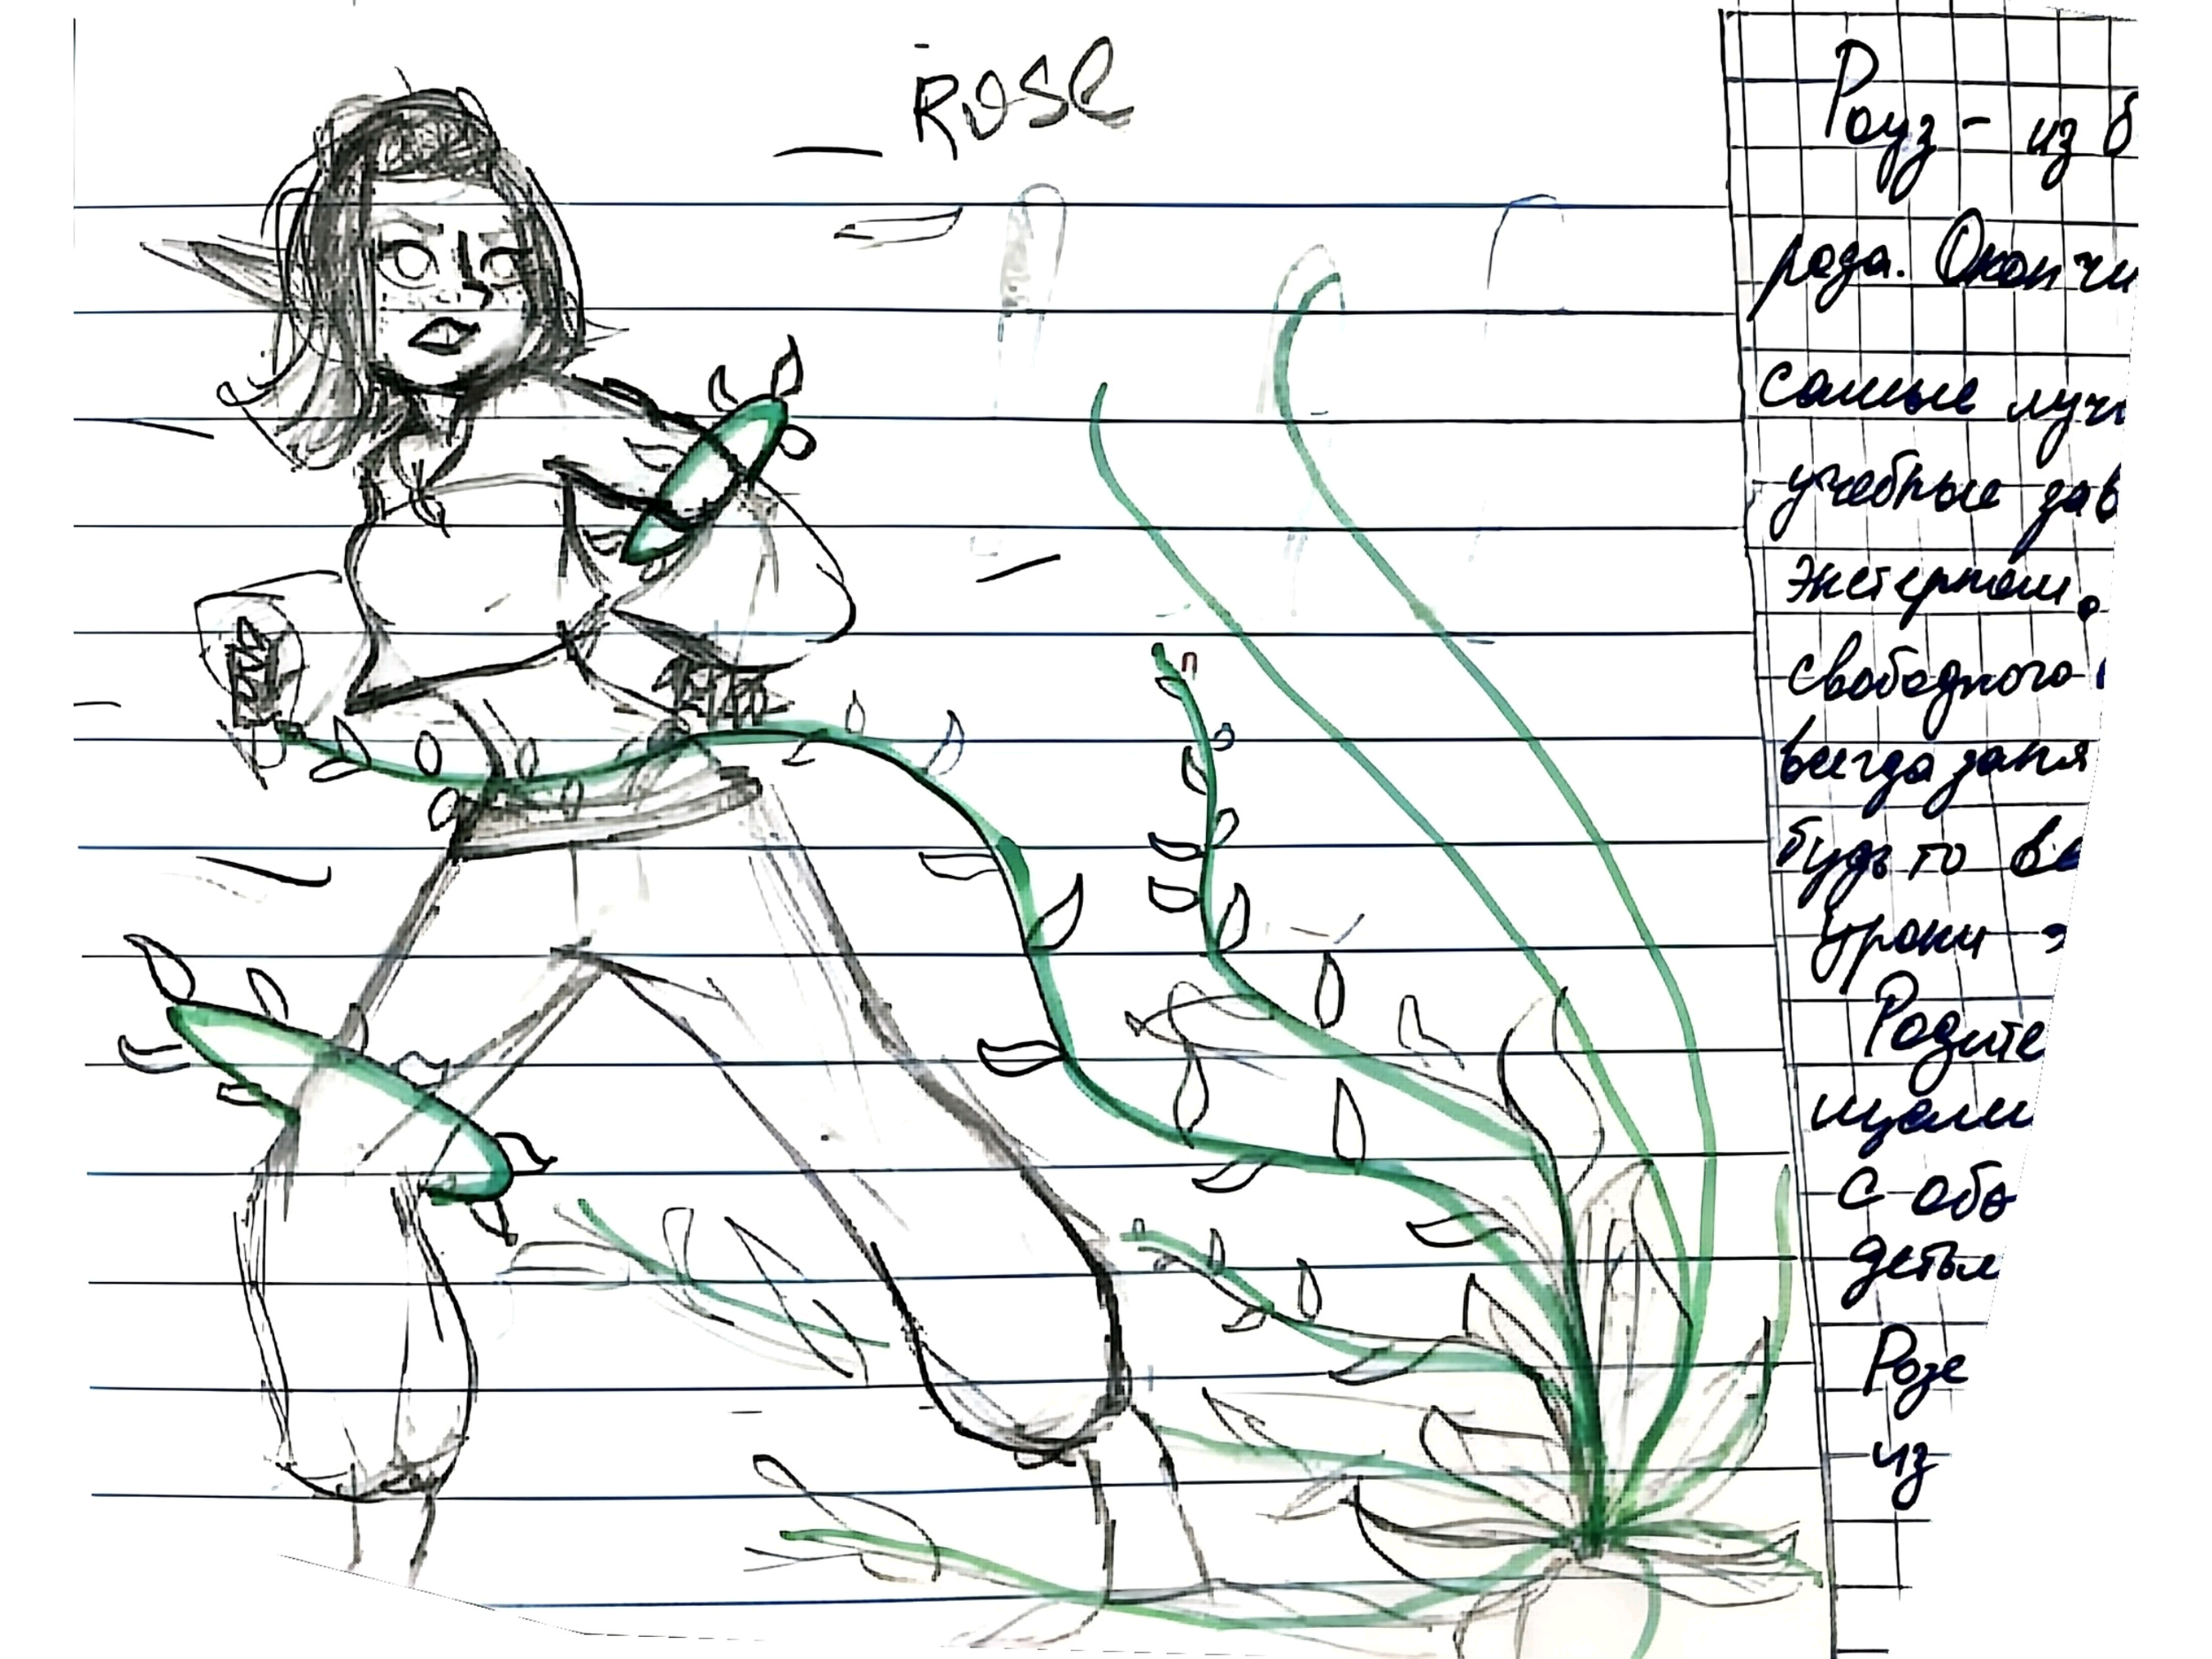 Rose
Роуз - из б
рода. Окончи
самые луч
учебные зав
экстерном.
свободного
всегда заня
будь то ве
уроки э
Родите
щали
с обо
детьм
Розе
из